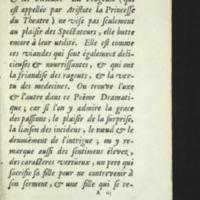 est appellée par Aristote la Princesse
du Theatre) ne vise pas seulement
au plaisir des Spectateurs, elle butte
encore à leur utilité. Elle est comme
ces viandes qui sont également deli-
cieuses & nourrissantes, & qui ont
la friandise des ragouts, & la ver-
tu des medecines. On trouve l'une
& l'autre dans ce Poëme Dramati-
que, car si l'on y admire la grace
des passions, le plaisir de la surprise,
la liaison des incidens, le nœud & le
denouëment de l'intrigue; on y re-
marque aussi des sentimens élevez,
des caracteres vertueux, un pere qui
sacrifie sa fille pour ne contrevenir à
son serment, & une fille qui se re-
A iij